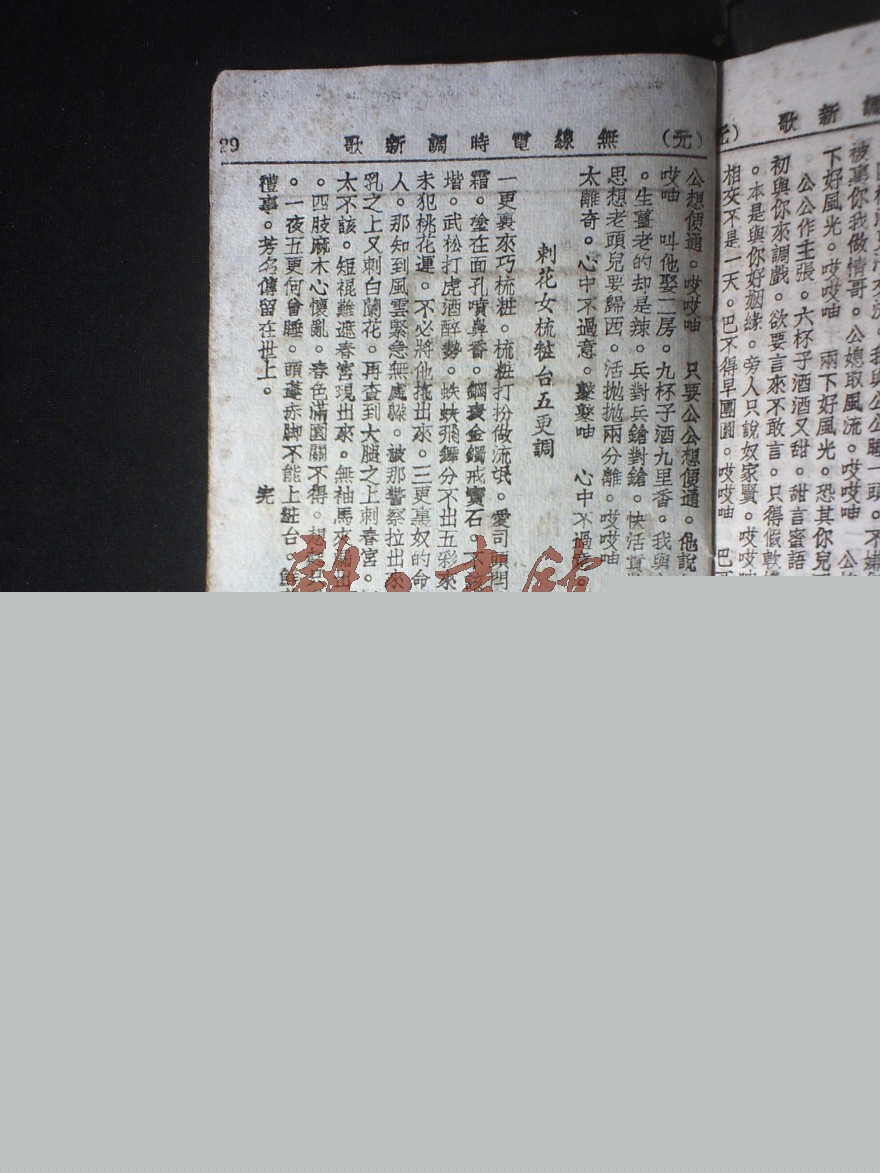 歌新調
元）
被裏你我做情哥。公媳取風流。哎哎呦
下好風光。哎哎呦　兩下好風光。恐其你兒
公公作主張。六杯子酒酒又甜。甜言蜜語
初與你來調戲。欲要言來不敢言。只得假
。本是與你好姻緣。旁人只說奴家賢。哎哎
相交不是一天。巴不得早團圓。哎哎呦　巴
29　歌新調時電線無　（元）
公想便通。哎哎呦　只要公公想便通。他說
哎呦　叫他娶二房。九杯子酒九里香。我與
。生薑老的却是辣。兵對兵鎗對鎗。快活
思想老頭兒要歸西。活拋拋兩分離。哎哎呦
太離奇。心中不過意。　心中不過意。
刺花女梳粧台五更調
一更裏來巧梳粧。梳粧打扮做流氓。愛司頭
霜。塗在面孔噴鼻香。鋼表金鐲戒寶石。不
堦。武松打虎酒醉勢。蚨蚨飛舞分不出五彩來
未犯桃花運。不必將他拖出來。三更裏奴的命
人。那知到風雲緊急無處躲。被那警察拉出來
乳之上又刺白蘭花。再查到大腿之上刺春宮。
太不該。短裩難遮春宮現出來。無袖馬夾
。四肢麻木心懷亂。春色滿園關不得。
。一夜五更何曾睡。頭蓬赤脚不能上粧台。
禮事。芳名傳留在世上。　完